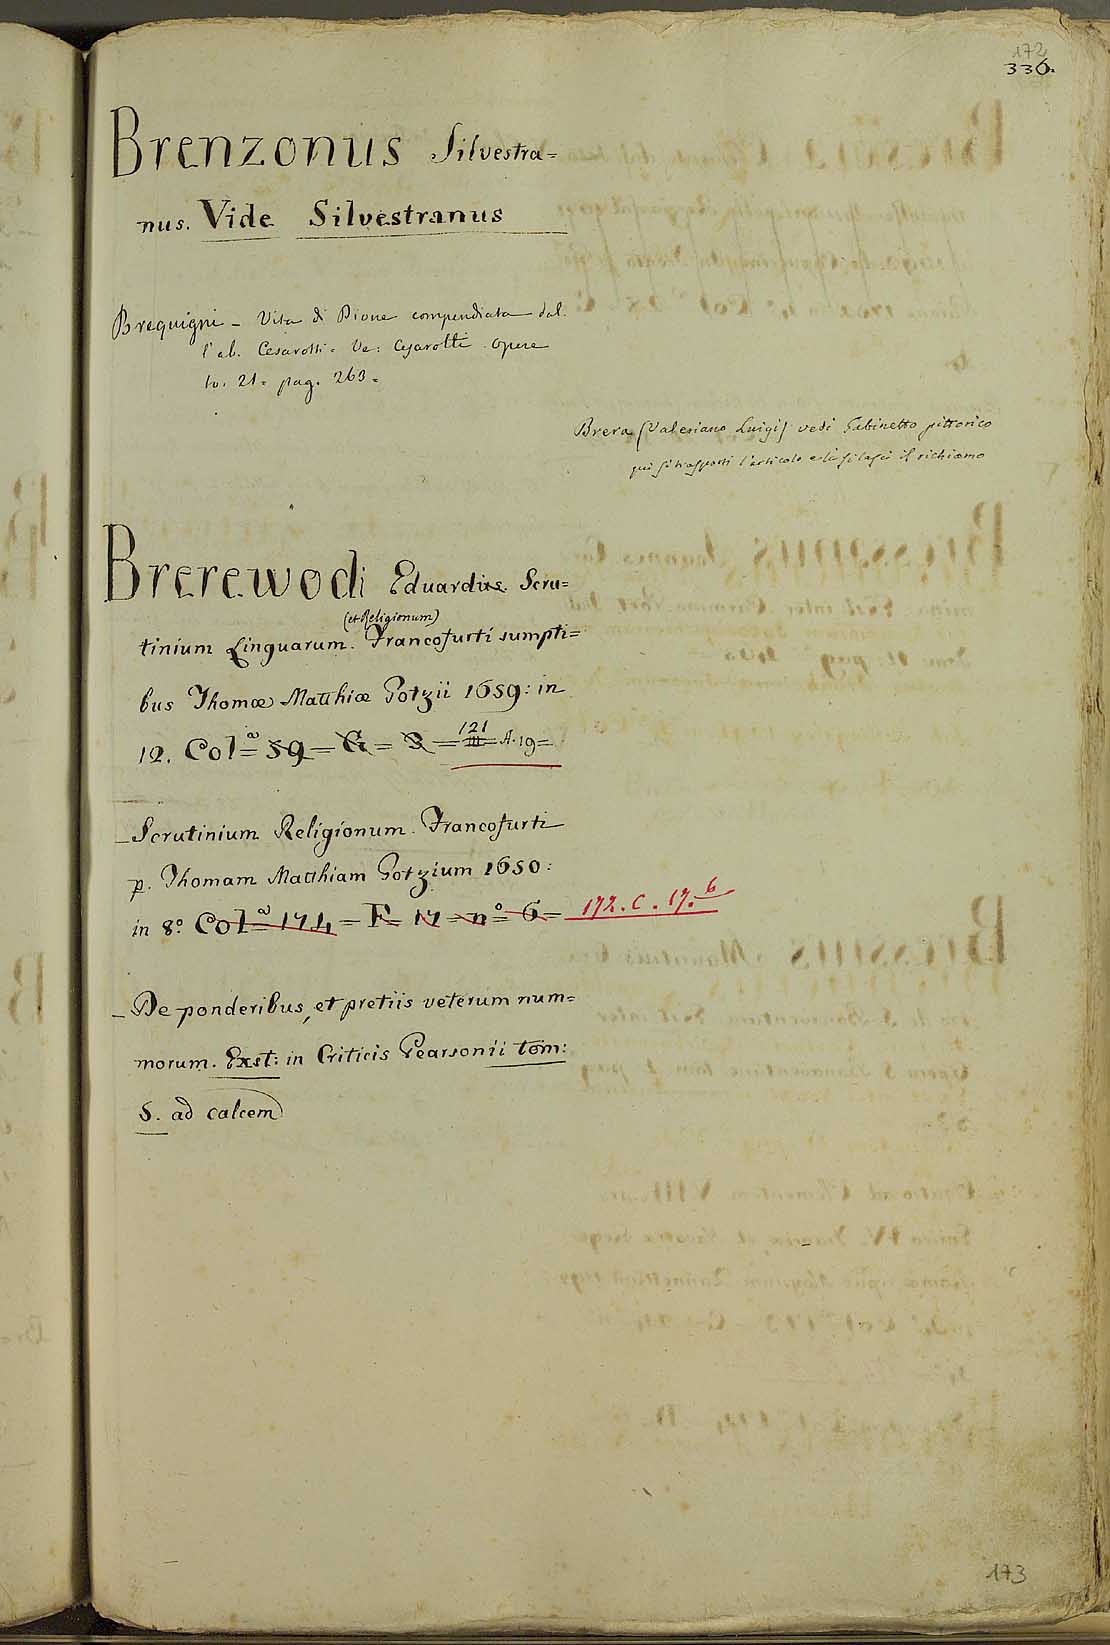 172
336.
Brenzonus Silvestra=
nus. Vide Silvestranus
Brequigni - Vita di Dione compendiata dal.
l'ab. Cesarotti = Ve: Cesarotti Opere
to. 21 = pag. 263 =
Brera (Valeriano Luigi) vedi Gabinetto pittorico
qui si trasporti l'articolo e lì si lasci il richiamo
Brerewodi Eduardus. Scru=
(et Religionum)
tinium Linguarum. Francofurti sumpti=
bus Thomæ Matthiæ Gotzii 1659: in
12. Col.ª 59 = G = 3 = 121 III = A. 19 =
_ Scrutinium Religionum. Francofurti
p. Thomam Matthiam Gotzium 1650:
in 8.° Col.ª 174 = F = 17 = n° 6 = 172. C. 17. 6
_ De ponderibus, et pretiis veterum num=
morum. Exst: in Criticis Pearsonii tom:
8. ad calcem
173